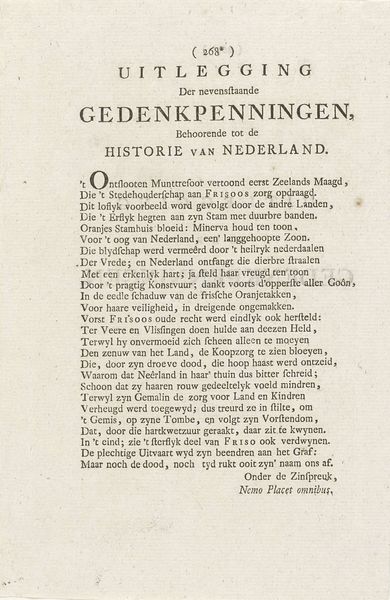 ( 268* )
UITLEGGING
Der nevensſtaande
GEDENKPENNINGEN,
Behoorende tot de
HISTORIE VAN NEDERLAND.
't Ontſlooten Munttreſoor vertoond eerst Zeelands Maagd,
Die 't Stedehouderſchap aan FRISOOS zorg opdraagd.
Dit loflyk voorbeeld word gevolgt door de andre Landen,
Die 't Erflyk hegten aan zyn Stam met duurbre banden.
Oranjes Stamhuis bloeid: Minerva houd ten toon,
Voor 't oog van Nederland, een' langgehoopte Zoon.
Die blydſchap werd vermeêrd door 't heilryk nederdaalen
Der Vrede; en Nederland ontfangt die dierbre ſtraalen
Met een erkenlyk hart; ja ſteld haar vreugd ten toon
Door 't pragtig Konstvuur; dankt voorts d'opperſte aller Goôn,
In de eedle ſchaduw van de friſſche Oranjetakken,
Voor haare veiligheid, in dreigende ongemakken.
Vorst FRISOOS oude recht werd eindlyk ook herſteld:
Ter Veere en Vliſſingen doen hulde aan deezen Held,
Terwyl hy onvermoeid zich ſcheen alleen te moeyen
Den zenuw van het Land, de Koopzorg te zien bloeyen,
Die, door zyn droeve dood, die hoop haast werd ontzeid,
Waarom dat Neêrland in haar' thuin dus bitter ſchreid;
Schoon dat zy haaren rouw gedeeltelyk voeld mindren,
Terwyl zyn Gemalin de zorg voor Land en Kindren
Verheugd werd toegewyd; dus treurd ze in ſtilte, om
't Gemis, op zyne Tombe, en volgt zyn Vorſtendom,
Dat, door die hartkwetzuur geraakt, daar zit te kwynen.
In 't eind; zie 't ſterflyk deel van FRISO ook verdwynen.
De plechtige Uitvaart wyd zyn beendren aan het Graf:
Maar noch de dood, noch tyd rukt ooit zyn' naam ons af.
Onder de Zinſpreuk,
Nemo Placet omnibus.